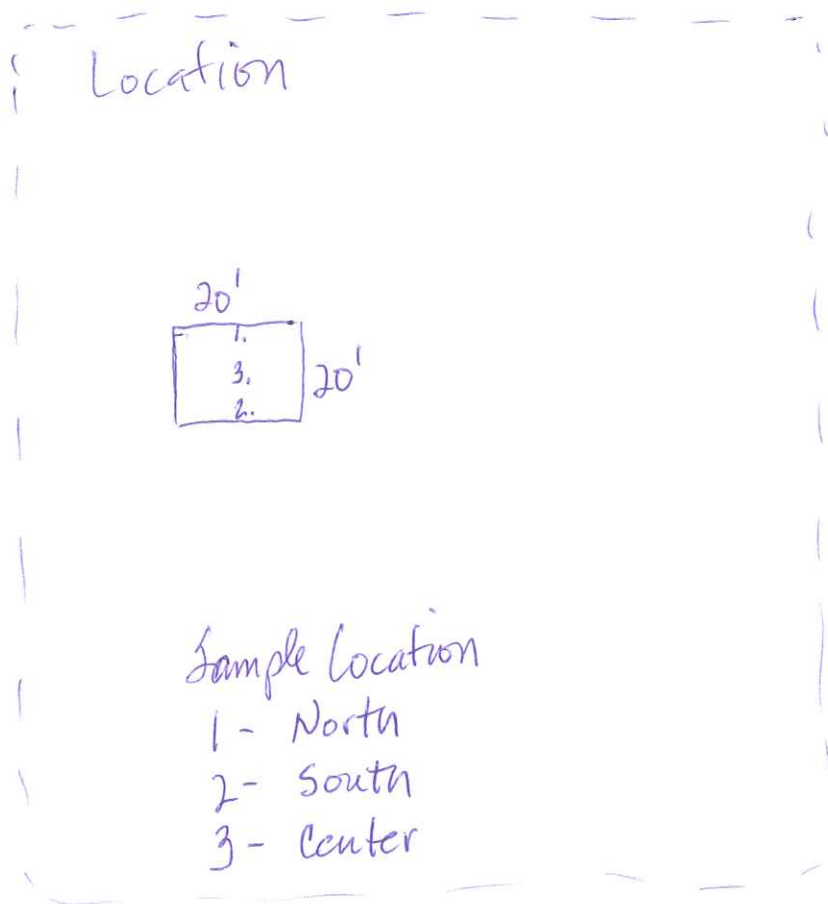 Location
20'
1.
3.
20'
2.
Sample Location
1- North
2- South
3- Center